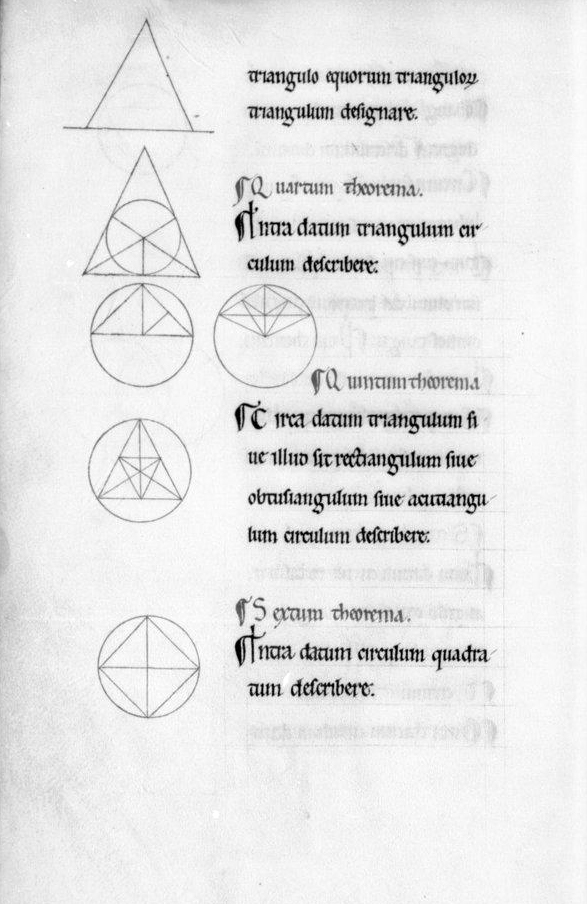 triangulo equorum trianguloꝝ
triangulum designare.
¶ Quartum theorema.
¶ Intra datum triangulum cir
culum describere.
¶ Quintum theorema
¶ Circa datum triangulum si
ue illud sit rectiangulum siue
obtusiangulum siue acutiangu
lum circulum describere.
¶ Sextum theorema.
¶ Intra datum circulum quadra
tum describere.